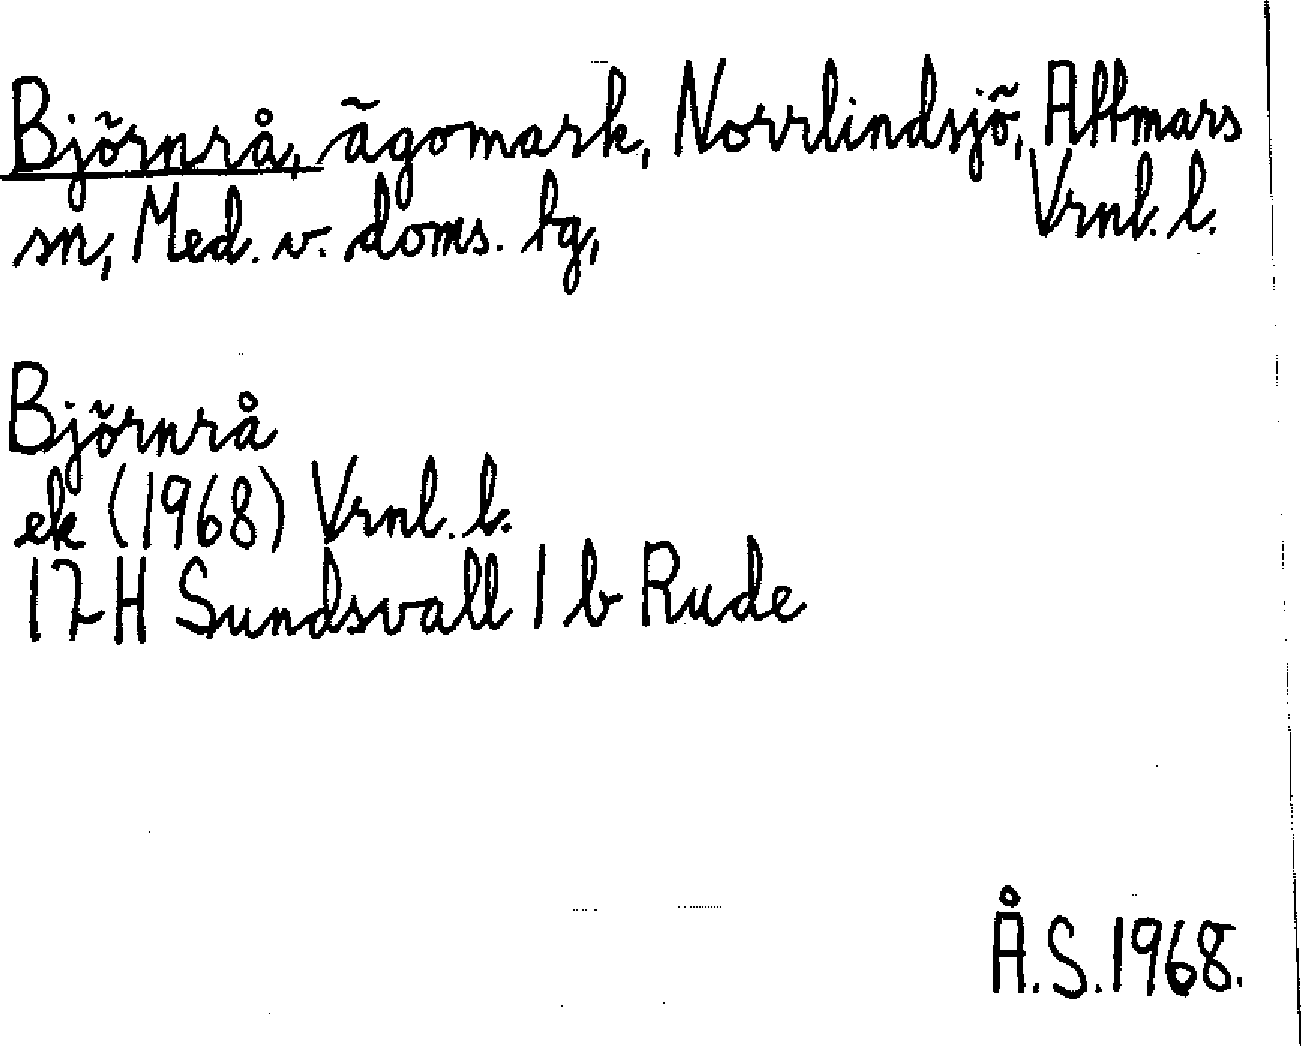 Björnrå, ägomark, Norrlindsjö, Attmars
sn, Med. v. doms. tg, Vrnl. l.
Björnrå
ek (1968) Vrnl. l.
17H Sundsvall 1 b Rude
Å.S. 1968.